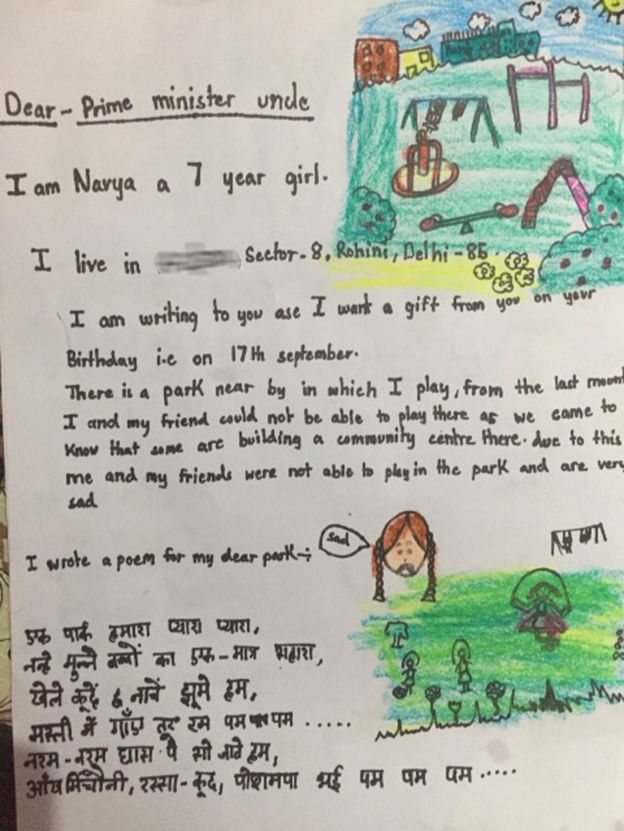 Dear - Prime minister uncle
I am Navya a 7 year girl.
I live in Sector-8, Rohini, Delhi - 85
I am writing to you ase I want a gift from you on your
Birthday i.e on 17th september.
There is a park near by in which I play, from the last mount
I and my friend could not be able to play there as we came to
Know that some are building a community centre there. due to this
me and my friends were not able to play in the park and are very
sad
sad
I wrote a poem for my dear park÷
एक पार्क हमारा प्यारा प्यारा,
नन्हे मुन्ने बच्चों का एक-मात्र सहारा,
खेले कूदें नाचें झूमे हम,
मस्ती में गाँए रम पम पम .....
नरम-नरम घास पे सो जावे हम,
आँख मिचौनी, रस्सा-कूद, पोशमपा भई पम पम पम .....